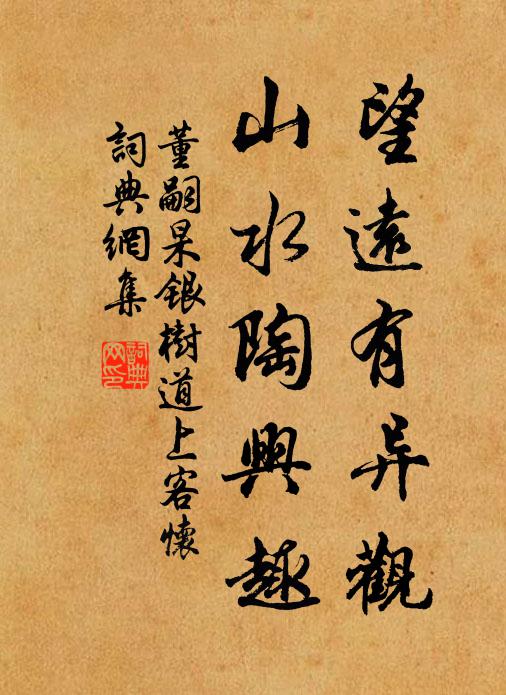 望遠有异觀
山水陶興趣
董嗣杲銀樹道上客懷
詞典網集
詞典
网印